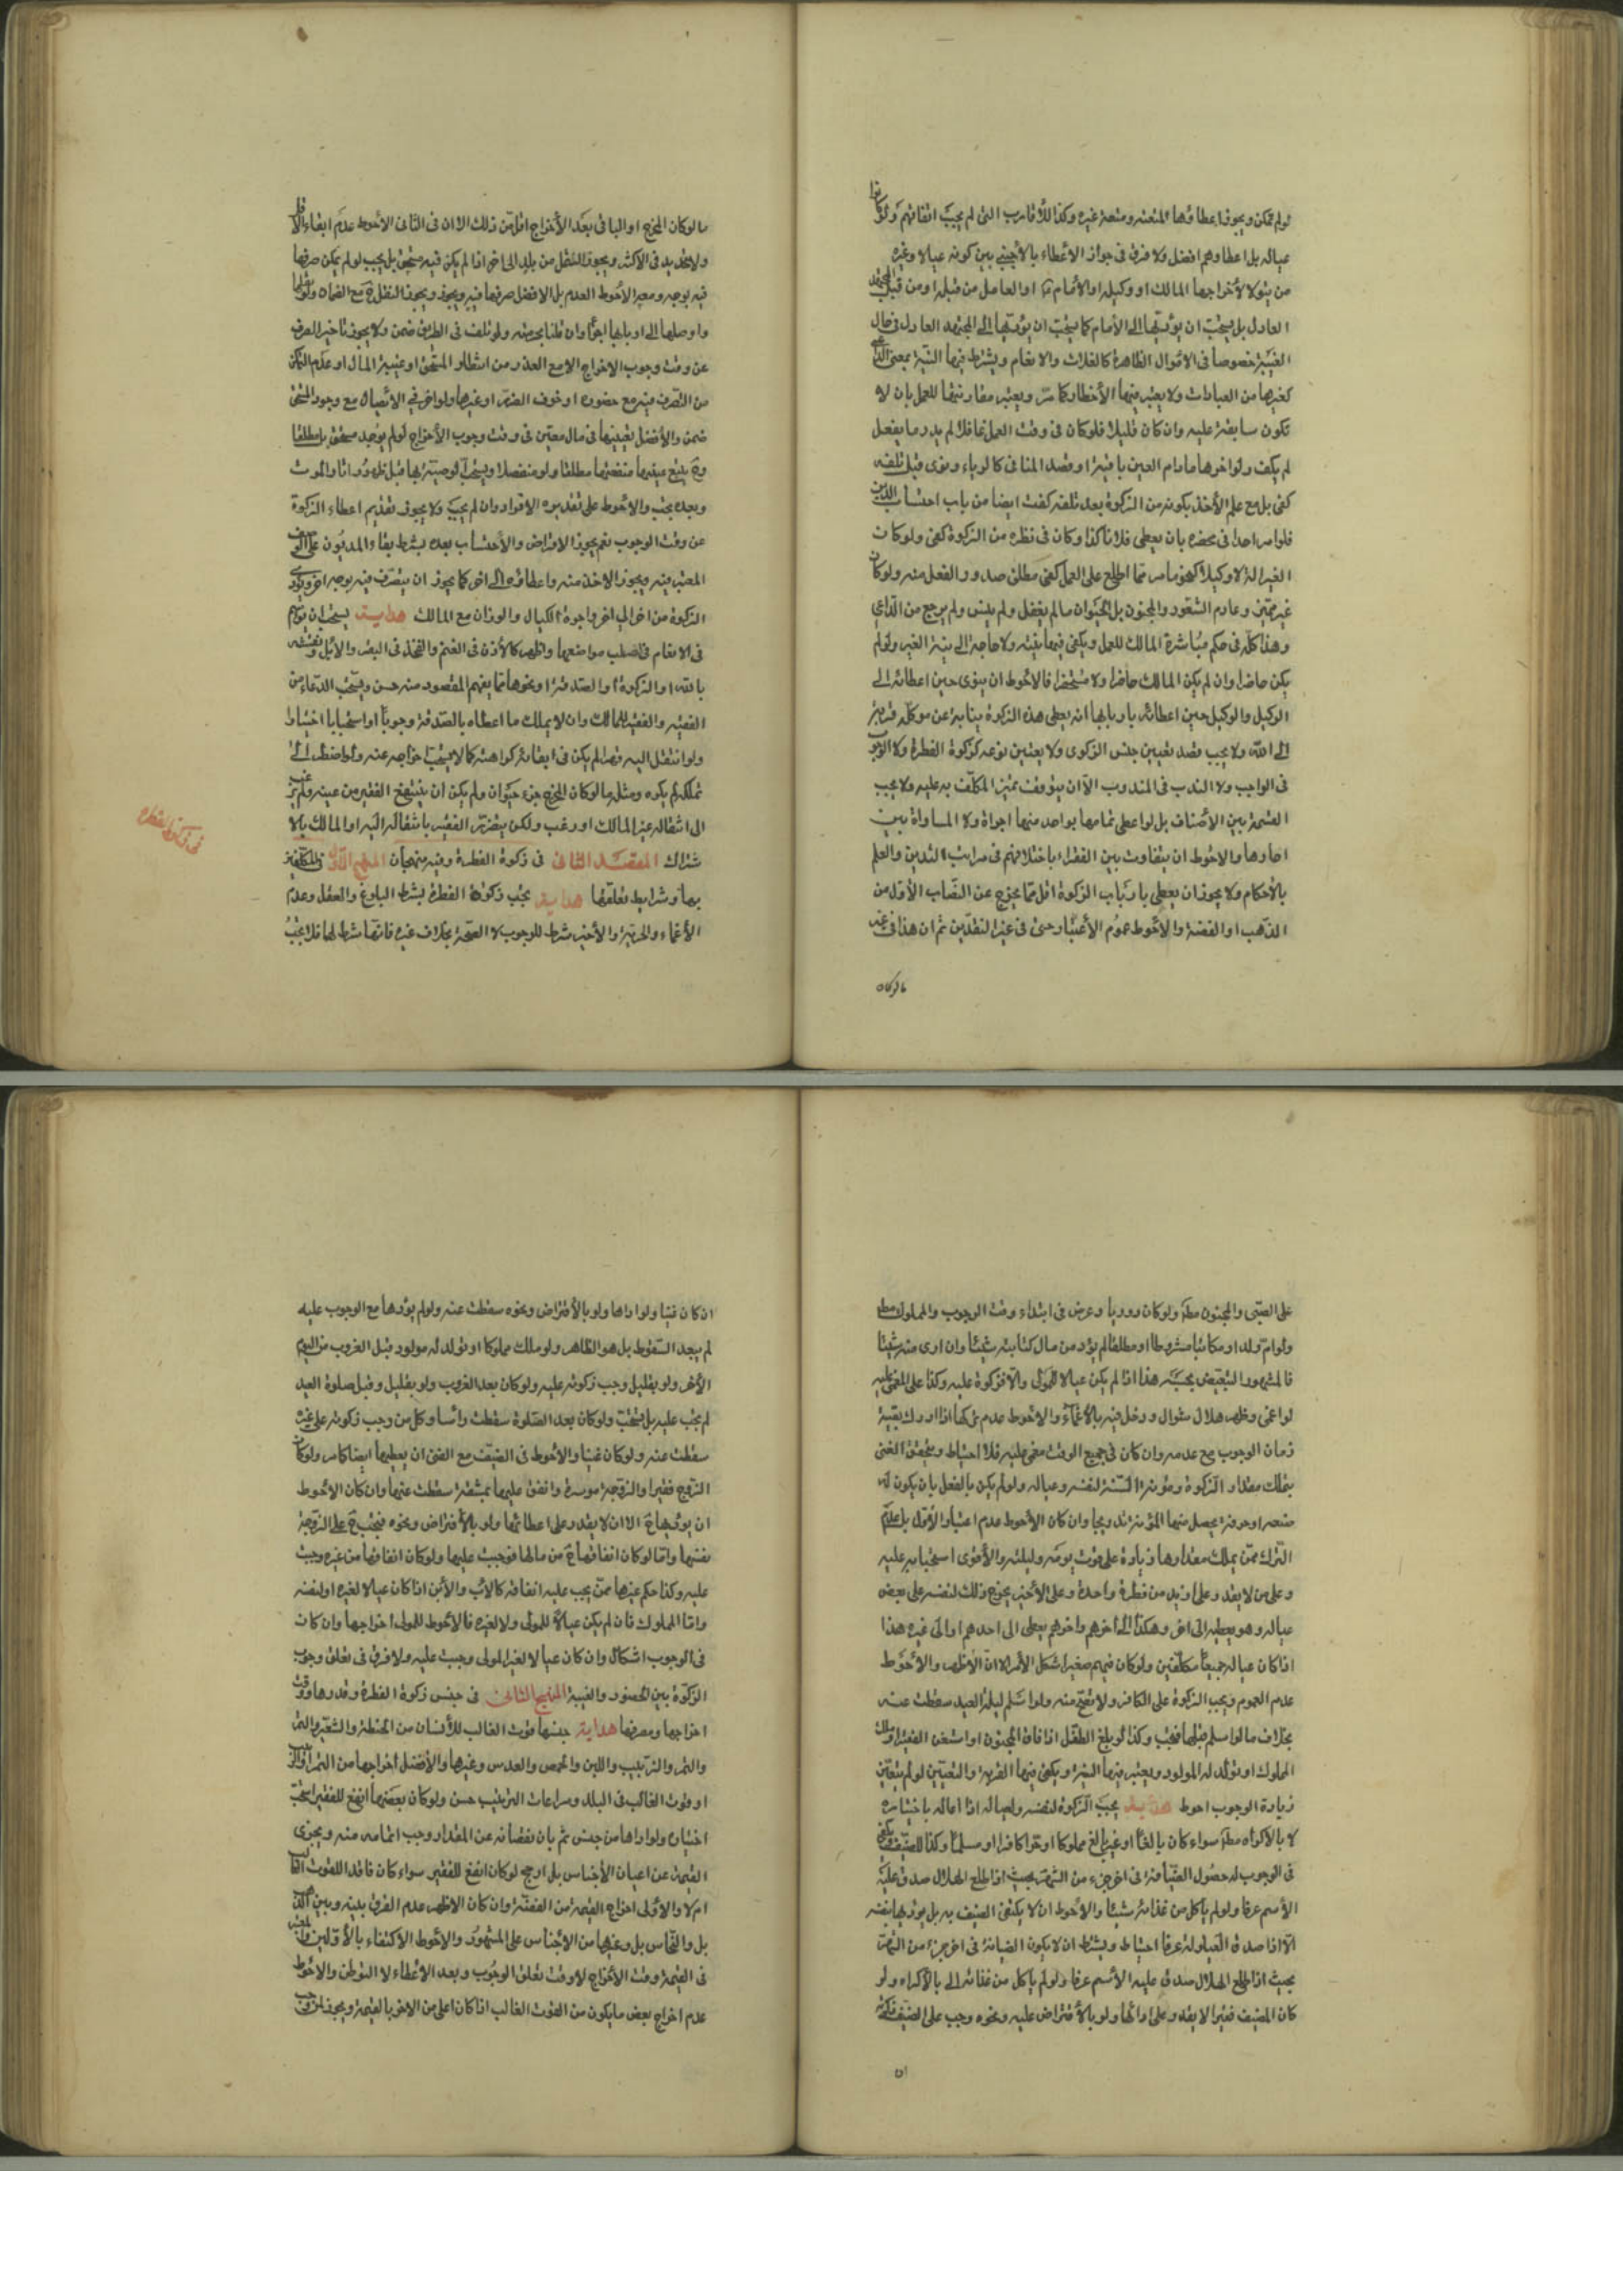 لولم يمكن ويجوز اعطاؤها لمتعته ومتعة غيره وكذا للأقارب التى لم يجب انفاقهم ولو كانوا
عياله بل اعطاوهم افضل ولا فرق فى جواز الاعطاء بالأجنبى بين كونه عيالا وغيره
من يتولا لأخراجها المالك او وكيله او الأمام او العامل من قبله او من قبل المجتهد
العادل بل يستحب ان يؤديها الى الأمام كما يستحب ان يؤديها الى المجتهد العادل فى حال
الغيبة خصوصا فى الاموال الظاهرة كالغلات والانعام ويشترط فيها النية بمعنى الداعى
كغيرها من العبادات ولا يعتبر فيها الأخطار كما مر ويعتبر مقارنتها للعمل بان لا
تكون سابقة عليه وان كان قليلا فلو كان فى وقت العمل غافلا لم يدر ما يفعل
لم يكف ولو اخرها مادام العين باقية او قصد المنافى كالرياء ونوى قبل تلفه
كفى بل مع علم الأخذ بكونه من الزكوة بعد تلفه كفت ايضا من باب احتساب الدين
فلو امر احدا فى محضره بان يعطى فلانا كذا وكان فى نظره من الزكوة كفى ولو كان
الغير الة لا وكيلا كبحو مامر مما اطلع على العمل كفى مطلق صدور الفعل منه ولو كان
غير مميز وعادم الشعور والمجنون بل الحيوان مالم يغفل ولم ينس ولم يرجع من الداعى
وهذا كله فى حكم مباشرة المالك للعمل ويكفى فيها نيته ولا حاجة الى نية الغير ولو لم
يكن حاضرا وان لم يكن المالك حاضرا ولا مستحضرا فالاحوط ان ينوى حين اعطائه الى
الوكيل والوكيل حين اعطائه باربابها انه يعطى هذه الزكوة نيابة عن موكله قربة
الى الله ولا يجب قصد تعيين جنس الزكوى ولا تعيين نوعه كزكوة الفطرة ولا الوجوب
فى الواجب ولا الندب فى المندوب الا ان يتوقف تميز المكلف به عليه ولا يجب
القسمة بين الأصناف بل لو اعطى تمامها بواحد منها اجزأه ولا المساواة بين
احادها والاحوط ان يتفاوت بين الفقراء باختلافهم فى مراتب التدين والعلم
بالأحكام ولا يجوز ان يعطى بارباب الزكوة اقل مما يخرج عن النصاب الأول من
الذهب او الفضة والاحوط عموم الأعتبار حتى فى غير النقدين ثم ان هذا فى غير
مالو كان
مالو كان المخرج او الباقى بعد الأخراج اقل من ذلك الا ان فى الثانى الاحوط عدم ابقاء الاقل
ولا تحديد فى الاكثر ويجوز النقل من بلد الى اخر اذا لم يكن فيه مستحق بل يجب لو لم يمكن صرفها
فيه بوجه ومعه الاحوط العدم بل الافضل صرفها فيه ويجوز النقل ح مع الضمان ولو نقلها
واوصلها الى اربابها اجزأ وان قلنا بحرمته ولو تلف فى الطريق ضمن ولا يجوز تاخير الصرف
عن وقت وجوب الاخراج الا مع العذر من انتظار المستحق او غيبة المال او عدم التمكن
من التصرف فيه مع حضوره او خوف الضرر او غيرها ولو اخر فى الأيصال مع وجود المستحق
ضمن والأفضل تعيينها فى مال معين فى وقت وجوب الأخراج لو لم يوجد مستحق بل مطلقا
وح يتبع عينها منفعتها مطلقا ولو منفصلا ويستحب الوصية بها قبل ظهور امارات الموت
وبعده يجب والاحوط على تقديره الاقرار وان لم يجب ولا يجوز تقديم اعطاء الزكوة
عن وقت الوجوب نعم يجوز الاقراض والأحتساب بعده بشرط بقاء المديون على الوصف
المعتبر فيه ويجوز الاخذ منه واعطاؤه الى اخر كما يجوز ان يتصرف فيه بوجه اخر ويؤدى
الزكوة من اخر الى اخر واجرة الكيال والوزان مع المالك هداية يستحب ان توسم
فى الانعام فى اصلب مواضعها واظهر كالأذن فى الغنم والفخذ فى البقر والأبل ونقشه
بالله او الزكوة او الصدقة او نحوها مما يفهم المقصود منه حسن ويستحب الدعاء من
الفقيه والفقير للمالك وان لا يملك ما اعطاه بالصدقة وجوبا او استحبابا اختيارا
ولو انتقل اليه قهرا لم يكن فى ابقائه كراهة كما لا يستحب اخراجه عنه ولو اضطر الى
تملكه لم يكره ومثله مالو كان المخرج جزء حيوان ولم يمكن ان ينتفع الفقير من عينه ولم يرغب
الى انتقاله غير المالك او رغب ولكن يتضرر الفقير بانتقاله اليه او المالك بالا
شتراك المقصد الثانى فى زكوة الفطرة وفيه منهجان المنهج الاول فى المكلفين
بها وشرايط تعلقها هداية يجب زكوة الفطرة بشرط البلوغ والعقل وعدم
الأغماء والحرية والأخير شرط للوجوب لا الصحة بخلاف غيره فانها شرط لها فلا يجب
فى زكوة الفطرة
على الصبى والمجنون مطلقا ولو كان دوريا وعرض فى ابتداء وقت الوجوب والمملوك مطلقا
ولو ام ولد او مكاتبا مشروطا او مطلقا لم يؤد من مال كتابته شيئا وان ادى منه شيئا
فالمشهور التبعيض بحسبه هذا اذا لم يكن عيالا للمولى والا فزكوة عليه وكذا على المغمى عليه
لو اغمى وظهر هلال شوال ودخل فيه بالأغماء والاحوط عدم تركها اذا ادرك بقية
زمان الوجوب مع عدمه وان كان فى جميع الوقت مغمى عليه فلا احتياط ويتحقق الغنى
بتملك مقدار الزكوة ومؤنة السنة لنفسه وعياله ولو لم يكن بالفعل بان يكون له
صنعة او حرفة يحصل منها المؤنة تدريجا وان كان الأحوط عدم اعتبار الأول بل عدم
الترك ممن يملك مقدارها زيادة على قوت يومه وليلته والأقوى استحبابه عليه
وعلى من لا يقدر على ازيد من فطرة واحدة وعلى الأخير يخرج ذلك لنفسه على بعض
عياله وهو يعطيه الى اخر وهكذا الى أخرهم واخرهم يعطى الى احدهم او الى غيره هذا
اذا كان عياله جميعا مكلفين ولو كان فيهم صغير اشكل الأمر الا ان الاظهر والاحوط
عدم العموم ويجب الزكوة على الكافر ولا تصح منه ولو اسلم ليلة العيد سقطت عنه
بخلاف مالو اسلم قبلها فتجب وكذا لو بلغ الطفل او افاق المجنون او استغنى الفقير او ملك
المملوك او تولد له المولود ويعتبر فيها النية ويكفى فيها القربة والتعيين لو لم يتعين
زيادة الوجوب احوط هداية يجب الزكوة لنفسه ولعياله اذا اعاله باختياره
لا بالأكراه مطلقا سواء كان بالغا او غير بالغ مملوكا او حرا كافرا او مسلما وكذا للضيف ويكفى
فى الوجوب له حصول الضيافة فى اخر جزء من الشهر بحيث اذا طلع الهلال صدق عليه
الأسم عرفا ولو لم ياكل من غذائه شيئا والأحوط ان لا يكتفى الضيف به بل يؤديها بنفسه
الا اذا صدق العيلولة عرفا احتياط ويشترط ان لا يكون الضيافة فى اخر جزء من الشهر
بحيث اذا طلع الهلال صدق عليه الأسم عرفا ولو لم ياكل من غذائه الى بالأكراه ولو
كان المضيف فقيرا لا يقدر على ادائها ولو بالأقتراض عليه ونحوه وجب على الضيف زكوته
ان
ان كان غنيا ولو اداها ولو بالأقتراض ونحوه سقطت عنه ولو لم يؤدها مع الوجوب عليه
لم يبعد السقوط بل هو الظاهر ولو ملك مملوكا او تولد له مولود قبل الغروب من اليوم
الأخر ولو بقليل وجب زكوته عليه ولو كان بعد الغروب ولو بقليل وقبل صلوة العيد
لم يجب عليه بل يستحب ولو كان بعد الصلوة سقطت رأسا وكل من وجب زكوته على غيره
سقطت عنه ولو كان غنيا والاحوط فى الضيف مع الغنى ان يعطيها ايضا كما مر ولو كان
الزوج فقيرا والزوجة موسرة وانفق عليها بمشقة سقطت عنها وان كان الاحوط
ان يؤديها ح الا ان لا يقدر على اعطائها ولو بالأقتراض ونحوه فيجب ح على الزوجة
نفسها واما لو كان انفاقها ح من مالها فوجبت عليها ولو كان انفاقها من غيره وجبت
عليه وكذا حكم غيرها ممن يجب عليه انفاقه كالأب والأبن اذا كان عيالا لغيره او لنفسه
واما المملوك فان لم يكن عيالا للمولى ولا لغيره فالأحوط للمولى اخراجها وان كان
فى الوجوب اشكال وان كان عيالا لغير المولى وجبت عليه ولا فرق فى تعلق وجوب
الزكوة بين الحضور والغيبة المنهج الثانى فى جنس زكوة الفطرة وقدرها ووقت
اخراجها ومصرفها هداية جنسها قوت الغالب للأنسان من الحنطة والشعير والتمر
والارز والزبيب واللبن والحمص والعدس وغيرها والأفضل أخراجها من التمر او الزبيب
او قوت الغالب فى البلد ومراعات الترتيب حسن ولو كان بعضها أنفع للفقير استحب
اختياره ولو اداها من جنس ثم بان نقصانه عن المقدار وجب اتمامه منه ويجزى
القيمة عن اعيان الأجناس بل ارجح لو كان انفع للفقير سواء كان فاقدا للقوت الغالب
ام لا والأولى اخراج القيمة من الفضة وان كان الاظهر عدم الفرق بينه وبين الذهب
بل والنحاس بل وغيرها من الأجناس على المشهور والأحوط الأكتفاء بالأولين والمعتبر
فى القيمة وقت الأخراج لا وقت تعلق الوجوب وبعد الأعطاء لا التوطن والاحوط
عدم اخراج بعض ما يكون من القوت الغالب اذا كان اعلى من الاخر بالقيمة ويجوز